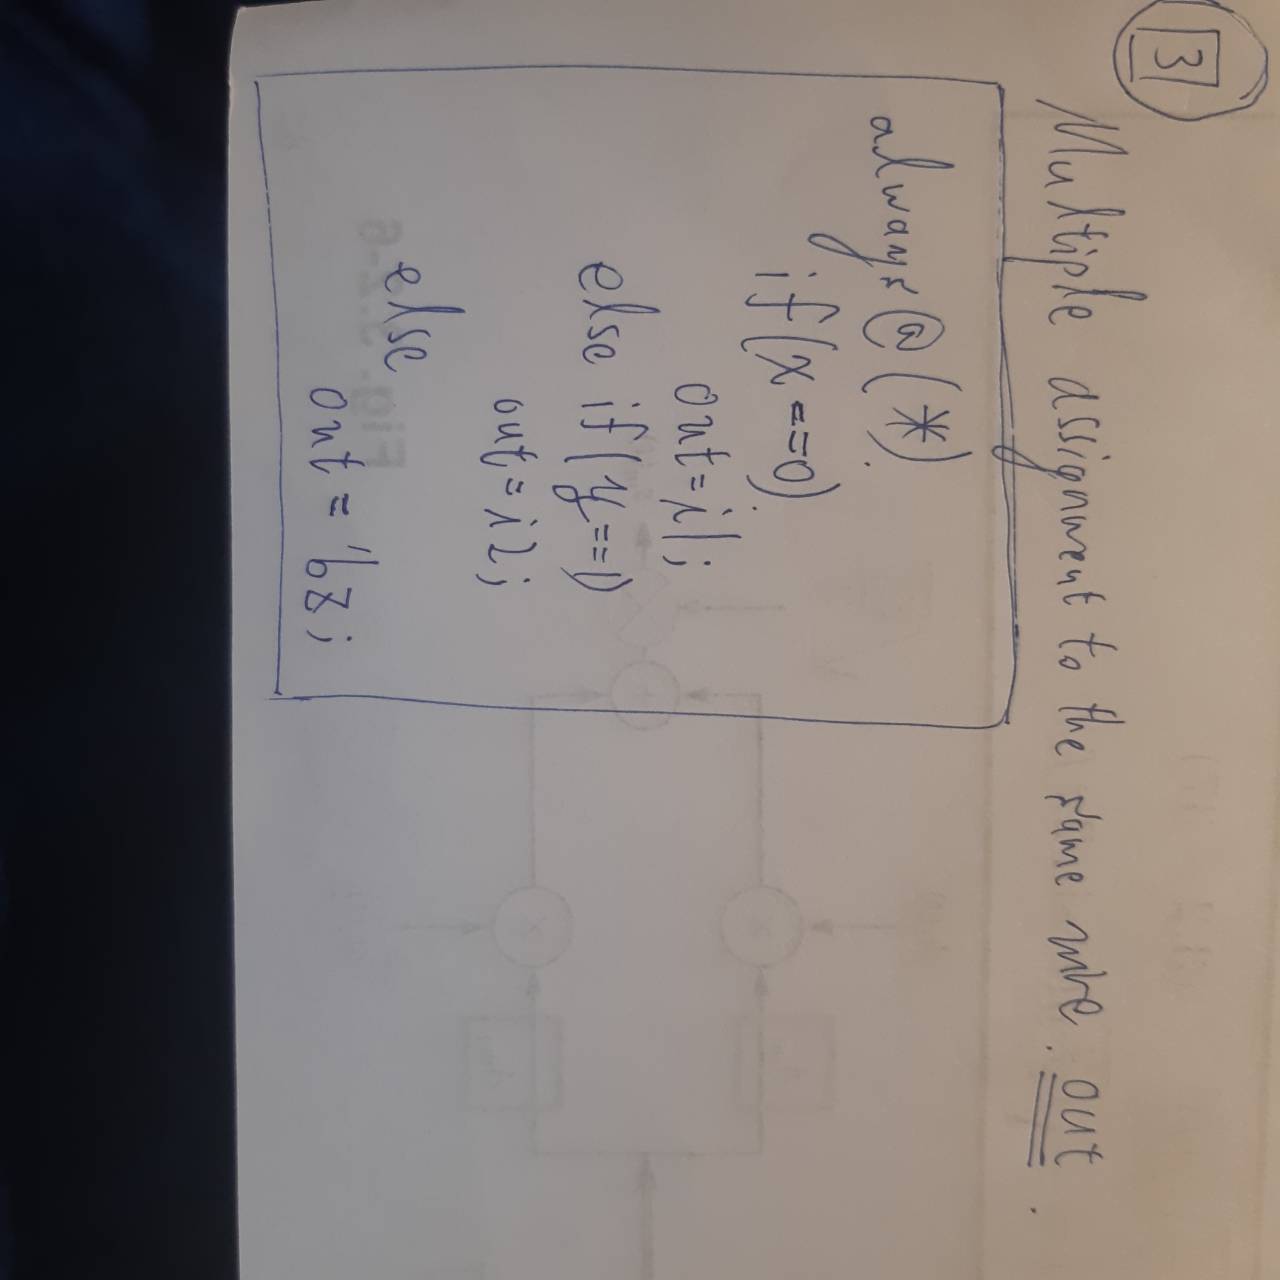 3
Multiple assignment to the same wire. out.
always@(*)
if(x==0)
out=i1;
else if(y==1)
out=i2;
else
out='bz;